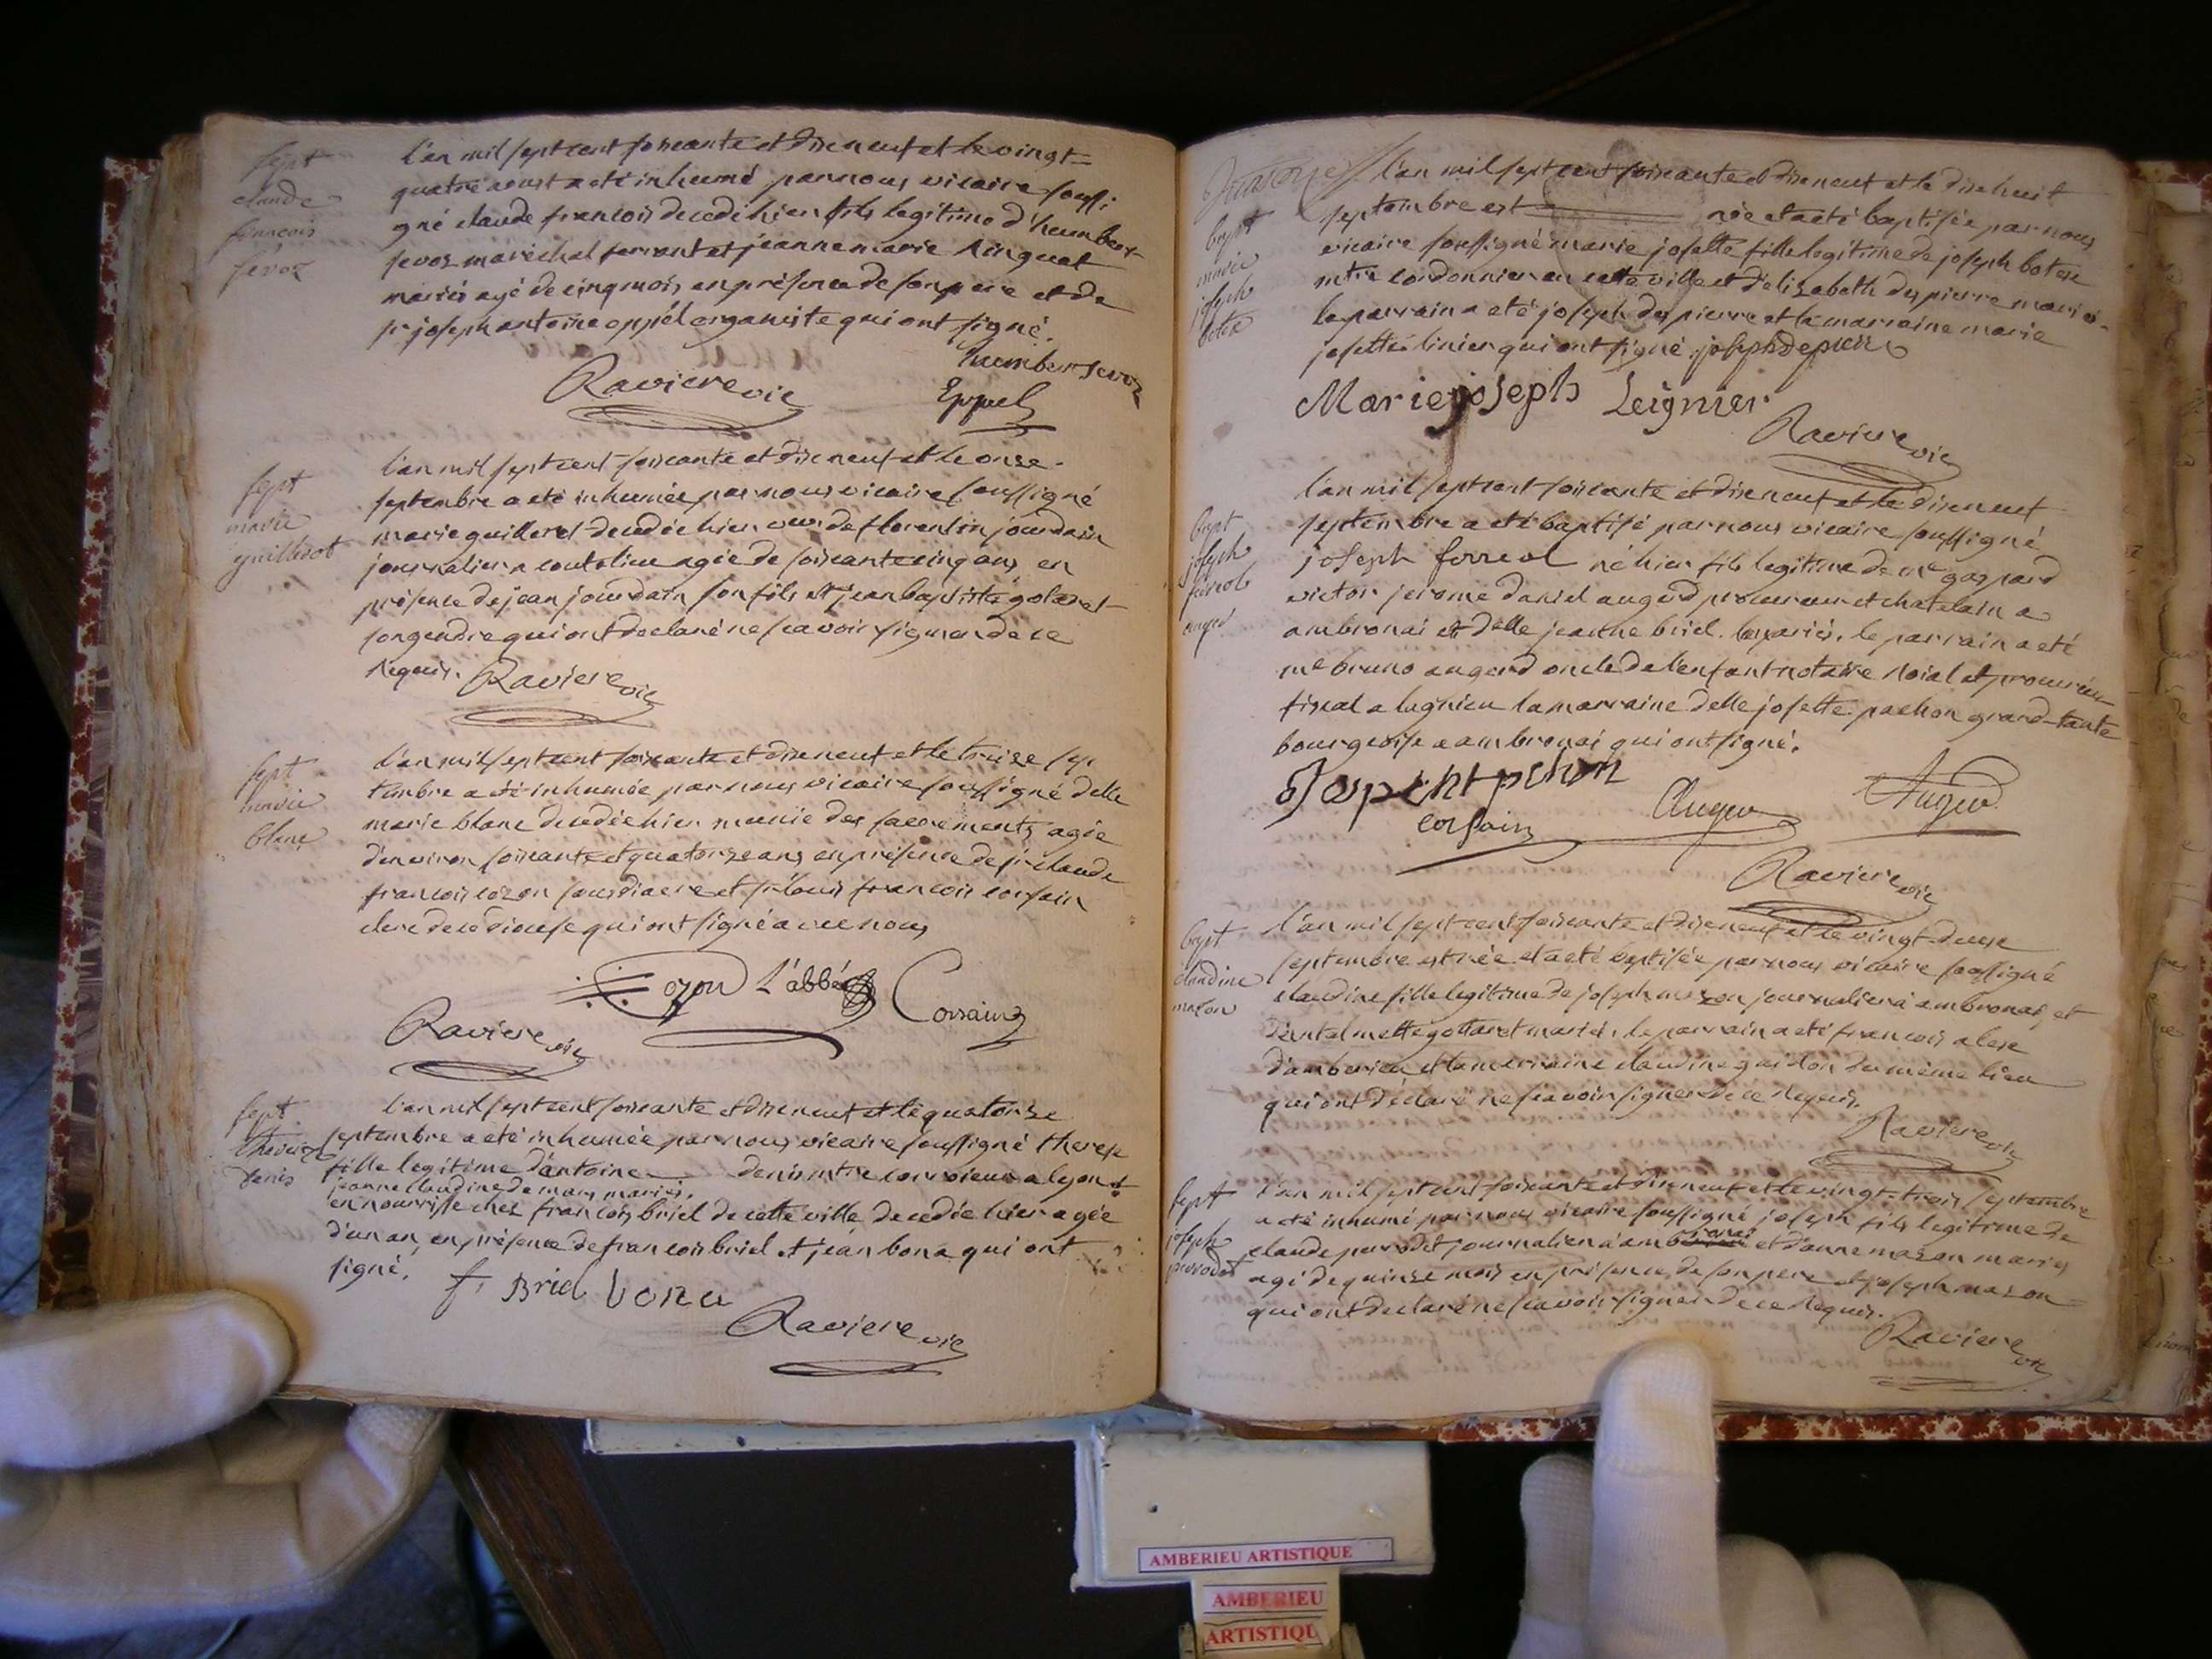 sept
claude
francois
sevoz
l'an mil sept cent soixante et dixneuf et le vingt-
quatre aoust a eté inhumé par nous vicaire soussi
gné claude francois decedé hier fils legitime d'humbert
sevoz marechal ferrant et jeanne marie
mariés agé de cinq mois en présence de son pere et de
sr joseph antoine eppel organiste qui ont signé.
humbert sevoz
Raviere vic
Eppel
sept
marie
guilleret
l'an mil sept cent soixante et dixneuf et le onze
septembre a eté inhumée par nous vicaire soussigné
marie guilleret decedée hier veuve de florentin jourdain
journalier a coutelieu agée de soixante cinq ans en
présence de jean jourdain son fils et jean baptiste golaret
son gendre qui ont declaré ne scavoir signer de ce
requis. Raviere vic
sept
marie
blanc
l'an mil sept cent soixante et dixneuf et le treize sep
tembre a eté inhumée par nous vicaire soussigné delle
marie blanc decedée hier munie des sacrements agée
d'environ soixante et quatorze ans en présence de sr claude
francois cozon sousdiacre et sr louis francois corsain
clerc de ce diocese qui ont signé avec nous
Cozon L'abbé Corsain
Raviere vic
sept
therese
denis
l'an mil sept cent soixante et dixneuf et le quatorze
septembre a eté inhumée par nous vicaire soussigné therese
fille legitime d'antoine denis mtre corroieur a lyon et
jeanne claudine de mars mariés.
en nourrisse chez francois briel de cette ville decedée hier agée
d'un an, en présence de francois briel et jean bona qui ont
signé. f. Briel bona
Raviere vic
bapt
marie
joseph
botex
l'an mil sept cent soixante et dixneuf et le dixhuit
septembre est née et a eté baptisée par nous
vicaire soussigné marie josette fille legitime de joseph botex
mtre cordonnier en cette ville et d'elizabeth despierre mariés.
le parrain a eté joseph despierre et la marraine marie
josette linier qui ont signé. joseph depierre
Marie joseph Leignier
Raviere vic
bapt
joseph
ferreol
auger
l'an mil sept cent soixante et dixneuf et le dixneuf
septembre a eté baptisé par nous vicaire soussigné
joseph ferreol né hier fils legitime de me gaspard
victor jerome daniel augerd procureur et chatelain a
ambronai et delle jeanne briel. mariés. le parrain a eté
me bruno augerd oncle de l'enfant notaire roial et procureur
fiscal a lagnieu la marraine delle josette pachon grand-tante
bourgeoise a ambronai qui ont signé.
corsain Auger Augerd
Raviere vic
bapt
claudine
mazon
l'an mil sept cent soixante et dixneuf et le vingt-deux
septembre est née et a eté baptisée par nous vicaire soussigné
claudine fille legitime de joseph mazon journalier a ambronai et
d'antelmette gottaret mariés. le parrain a eté francois alex
d'amberieu et la marraine claudine guidon du même lieu
qui ont déclaré ne scavoir signer de ce requis.
Raviere vic
sept
joseph
perrodet
l'an mil sept cent soixante et dixneuf et le vingt-trois septembre
a eté inhumé par nous vicaire soussigné joseph fils legitime de
claude perrodet journalier a ambronai et d'anne mazon mariés
agé de quinze mois en présence de son pere et joseph mazon
qui ont declaré ne scavoir signer de ce requis.
Raviere vic
AMBERIEU ARTISTIQUE
AMBERIEU
ARTISTIQU